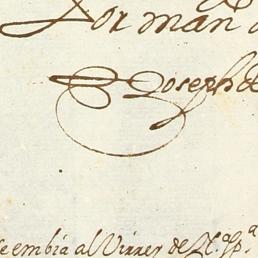 Por man
Joseph de
se embia al Virrey de N.ª Sp.ª